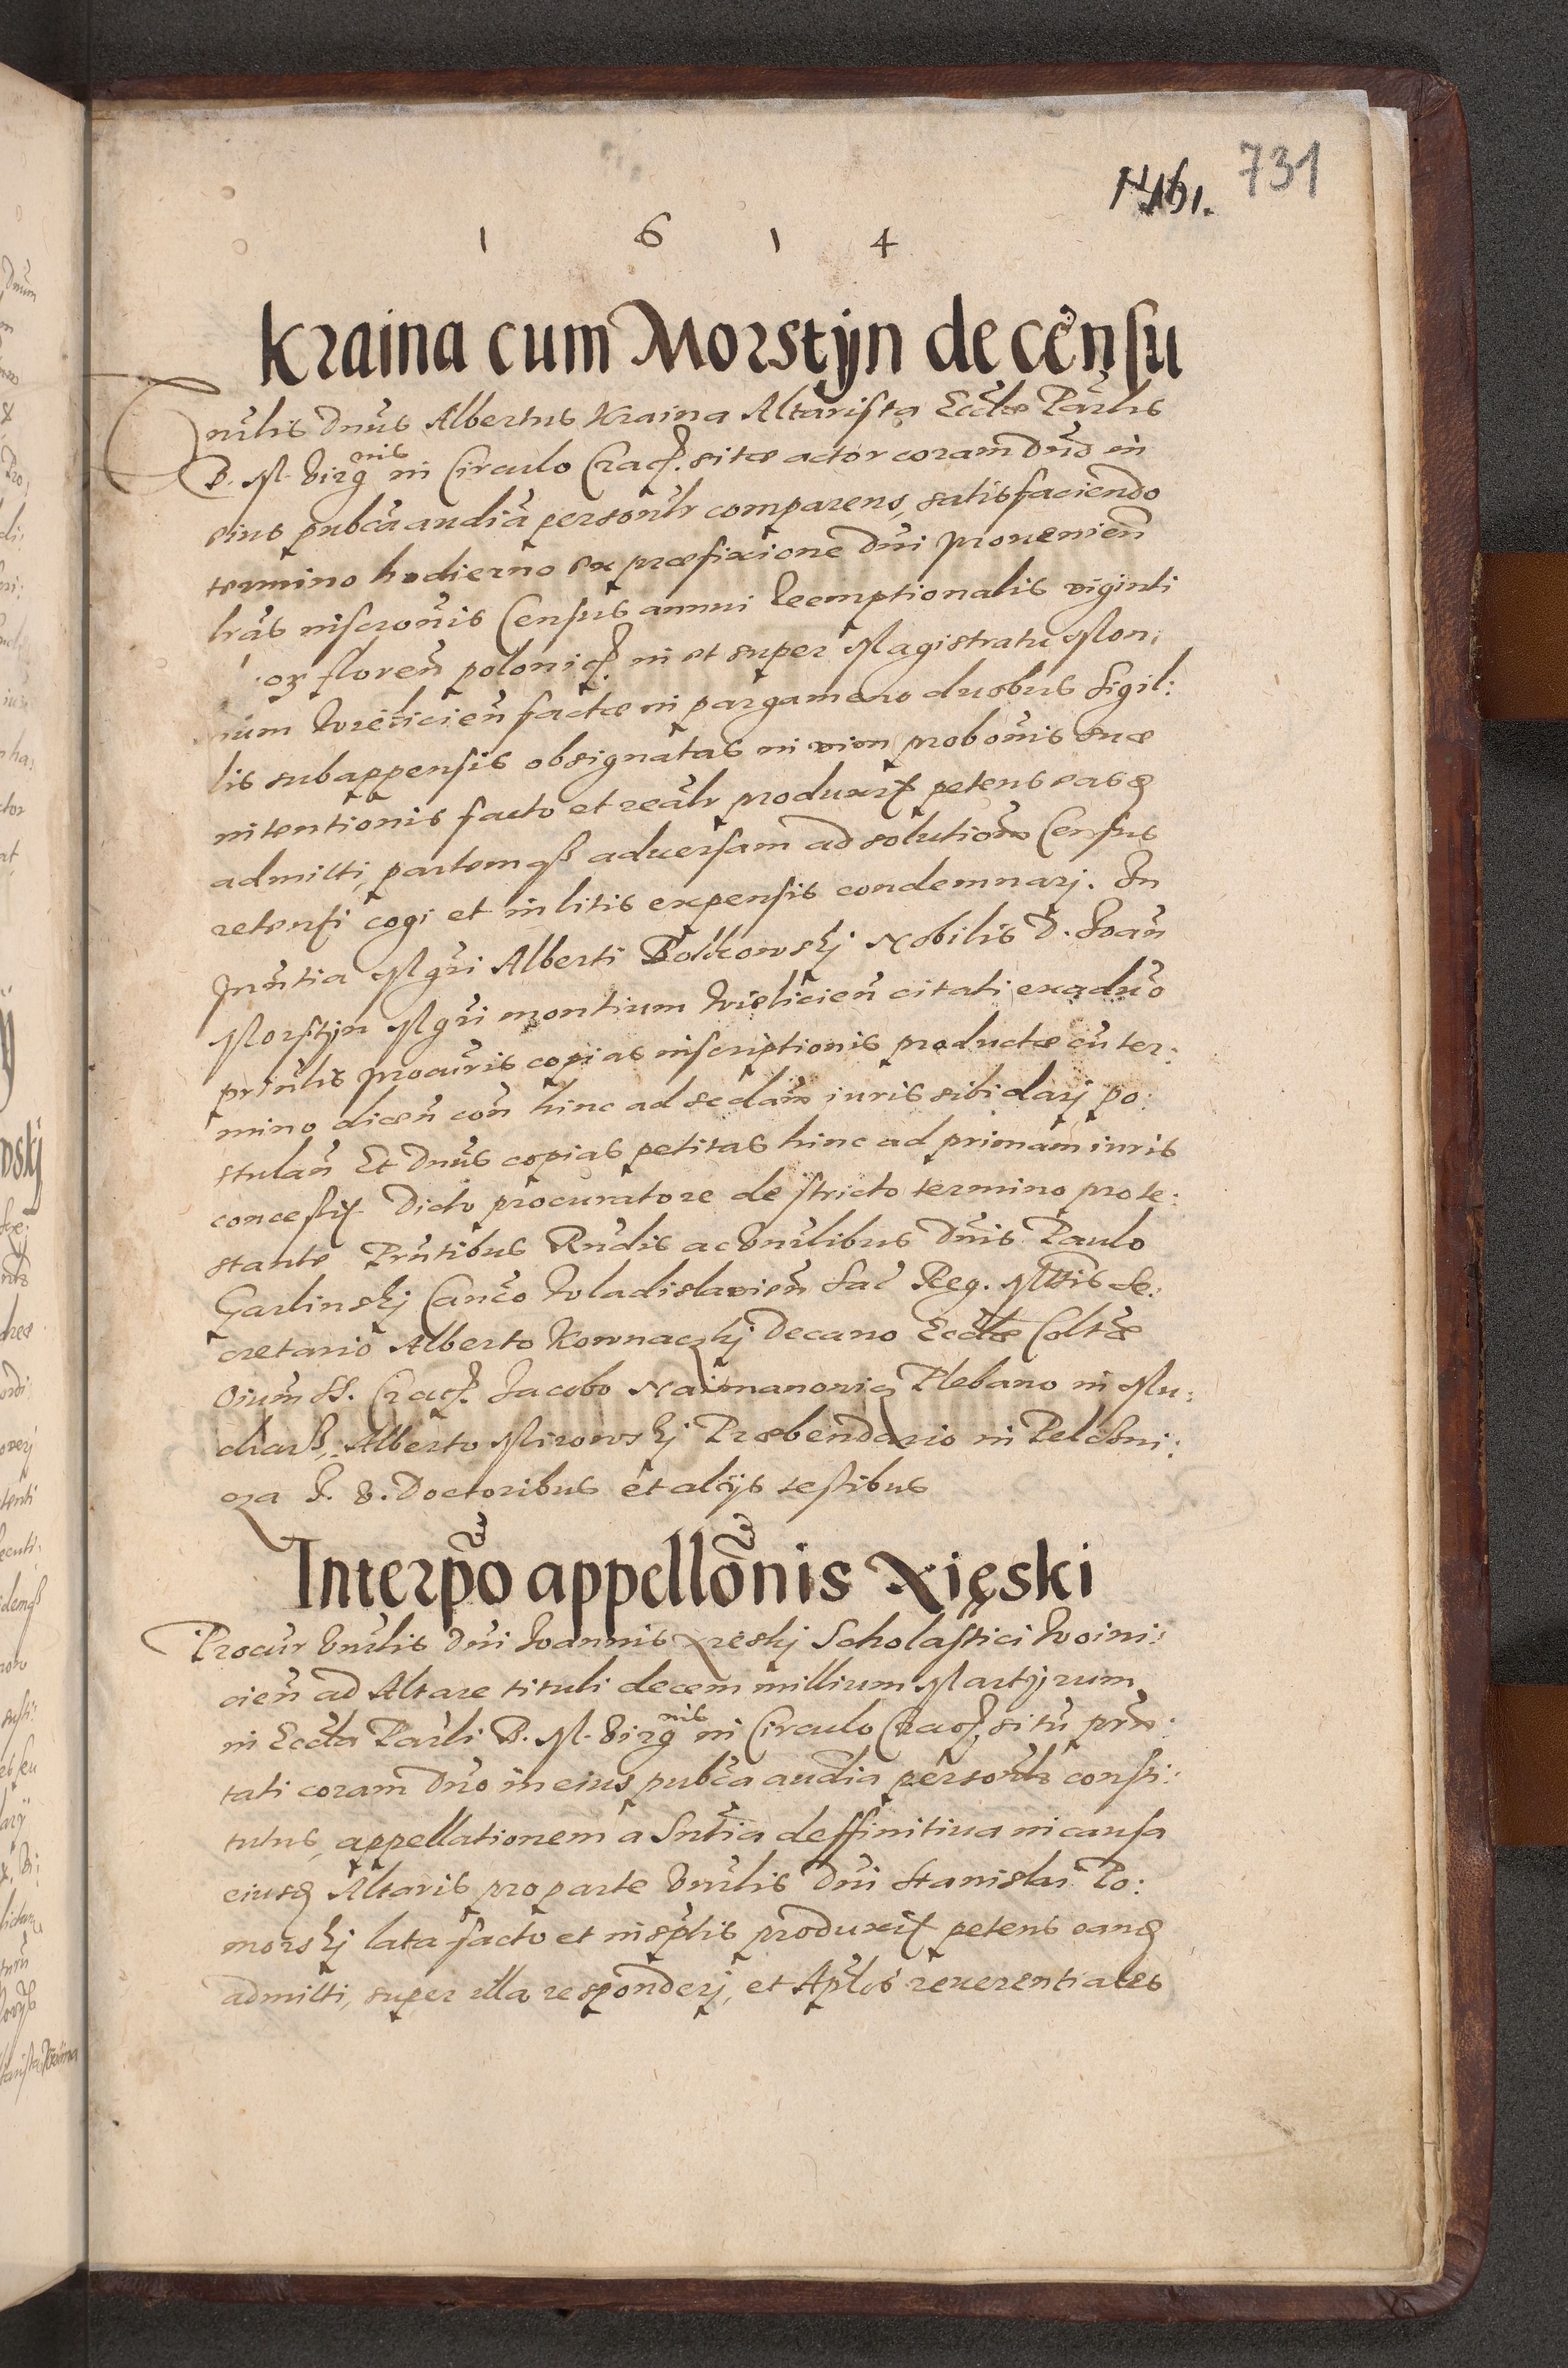 731
1 6 1 4
Kraina cum Morstÿn de censu
Vnrlis Dnus Albertus Kraina Altarista Eccłæ Parlis
B. M. Virgnis in Circulo Crac. sitæ actor coram Dno in
eius pubca audia personlr comparens, satisfaciendo
termino hodierno ex præfixione Dni proueniem
lras inscronis Census annui Reemptionalis viginti
floren polonic. in et super Magistratu Mon:
tium Wielicien factæ in pargameno duobus Sigil:
lis subappensis obsignatas in vim probonis suæ
intentionis facto et realr produxit petens eas
admitti, partemqß aduersam ad solutionem Census
retenti cogi et in litis expensis condemnarj. In
pnntia Mgri Alberti Bolkowskj Nobilis D. Joan
Morstÿn Mgri montium Wielicien citati ex aduo
prinlis procuris copias inscriptionis productæ cu ter:
mino dicen con hinc ad secdam iuris sibi darj po:
stulan Et Dnus copias petitas hinc ad primam iuris
concessit. Dicto procuratore de stricto termino prote:
stante Pntibus Rndis ac Vnrlibus Dnis Paulo
Garlinskj Canco Wladislavien Sac Reg. Mttis Se:
cretario Alberto Kownackj Decano Eccłæ Coltæ
Oium SS. Crac. Jacobo Naimanowic Plebano in Mu:
charß, Alberto Mirowskj Præbendario in Pelczni:
cza J. V. Doctoribus et alijs testibus
Interpo appellonis Xięski
Procur Vnrlis Dni Joannis Xięskj Scholastici Woini:
cien ad Altare tituli decem millium Martÿrum
in Eccła Parli B. M. Virgnis in Circulo Crac. situ præ:
tati coram Dno in eius pubca audia personlr consti:
tutus, appellationem a Sntia deffinitiua in causa
eiusd Altaris pro parte Vnrlis Dni Stanislai Po:
morskj lata facto et in scptis produxit petens eand
admitti, super illa responderj, et Aplos reuerentiales